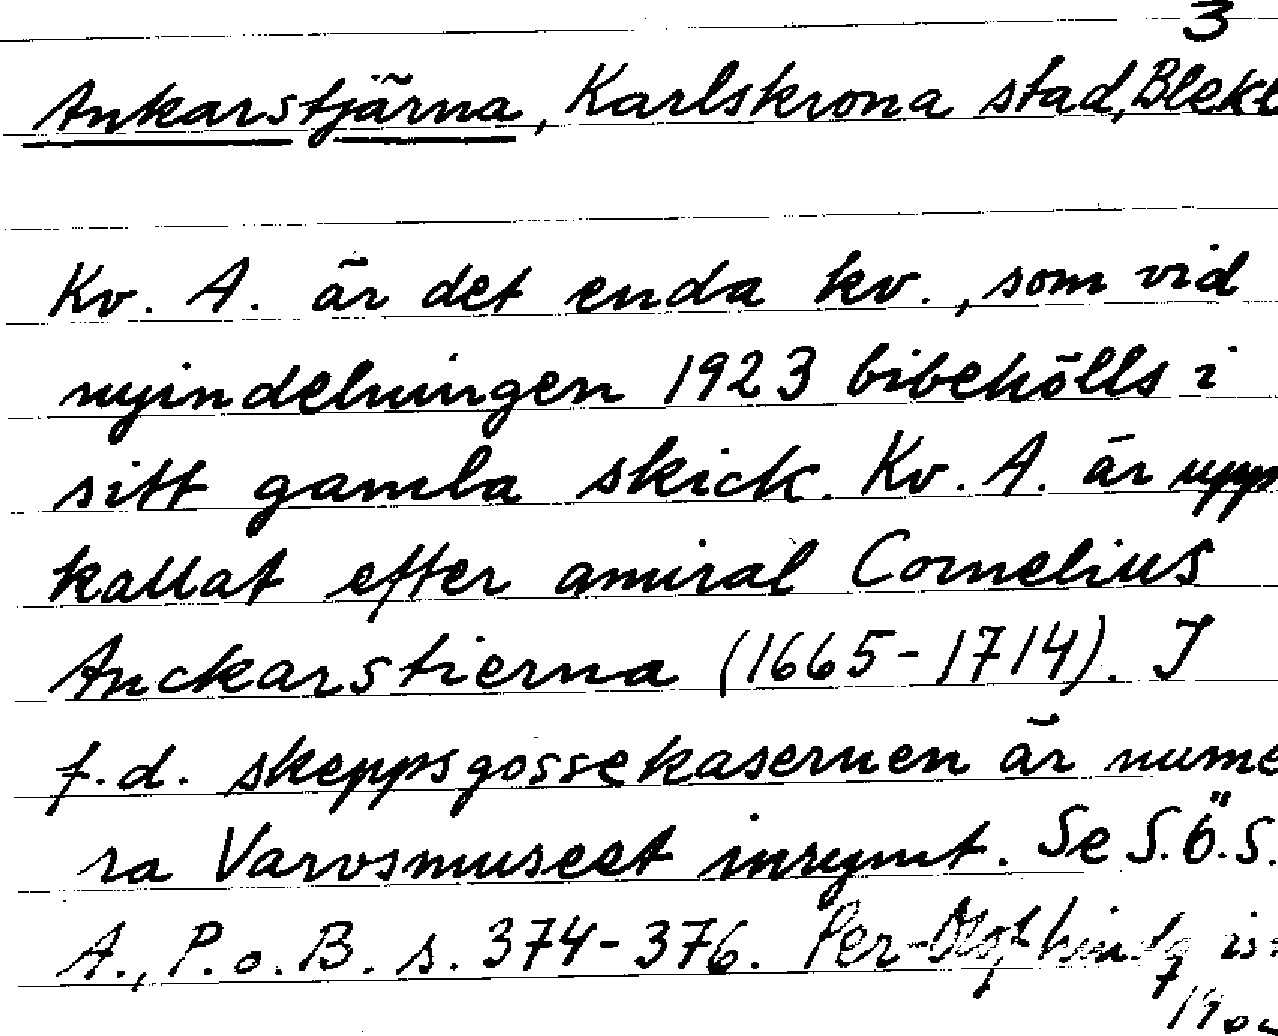 3
Ankarstjärna, Karlskrona stad, Blek
Kv. A. är det enda kv., som vid
nyindelningen 1923 bibehölls i
sitt gamla skick. Kv. A. är upp
kallat efter amiral Cornelius
Anckarstierna (1665-1714). I
f.d. skeppsgossekasernen är nume
ra Varvsmuseet inrymt. Se S.Ö.S.
A., P. o. B. s. 374-376. Per-Olof
19